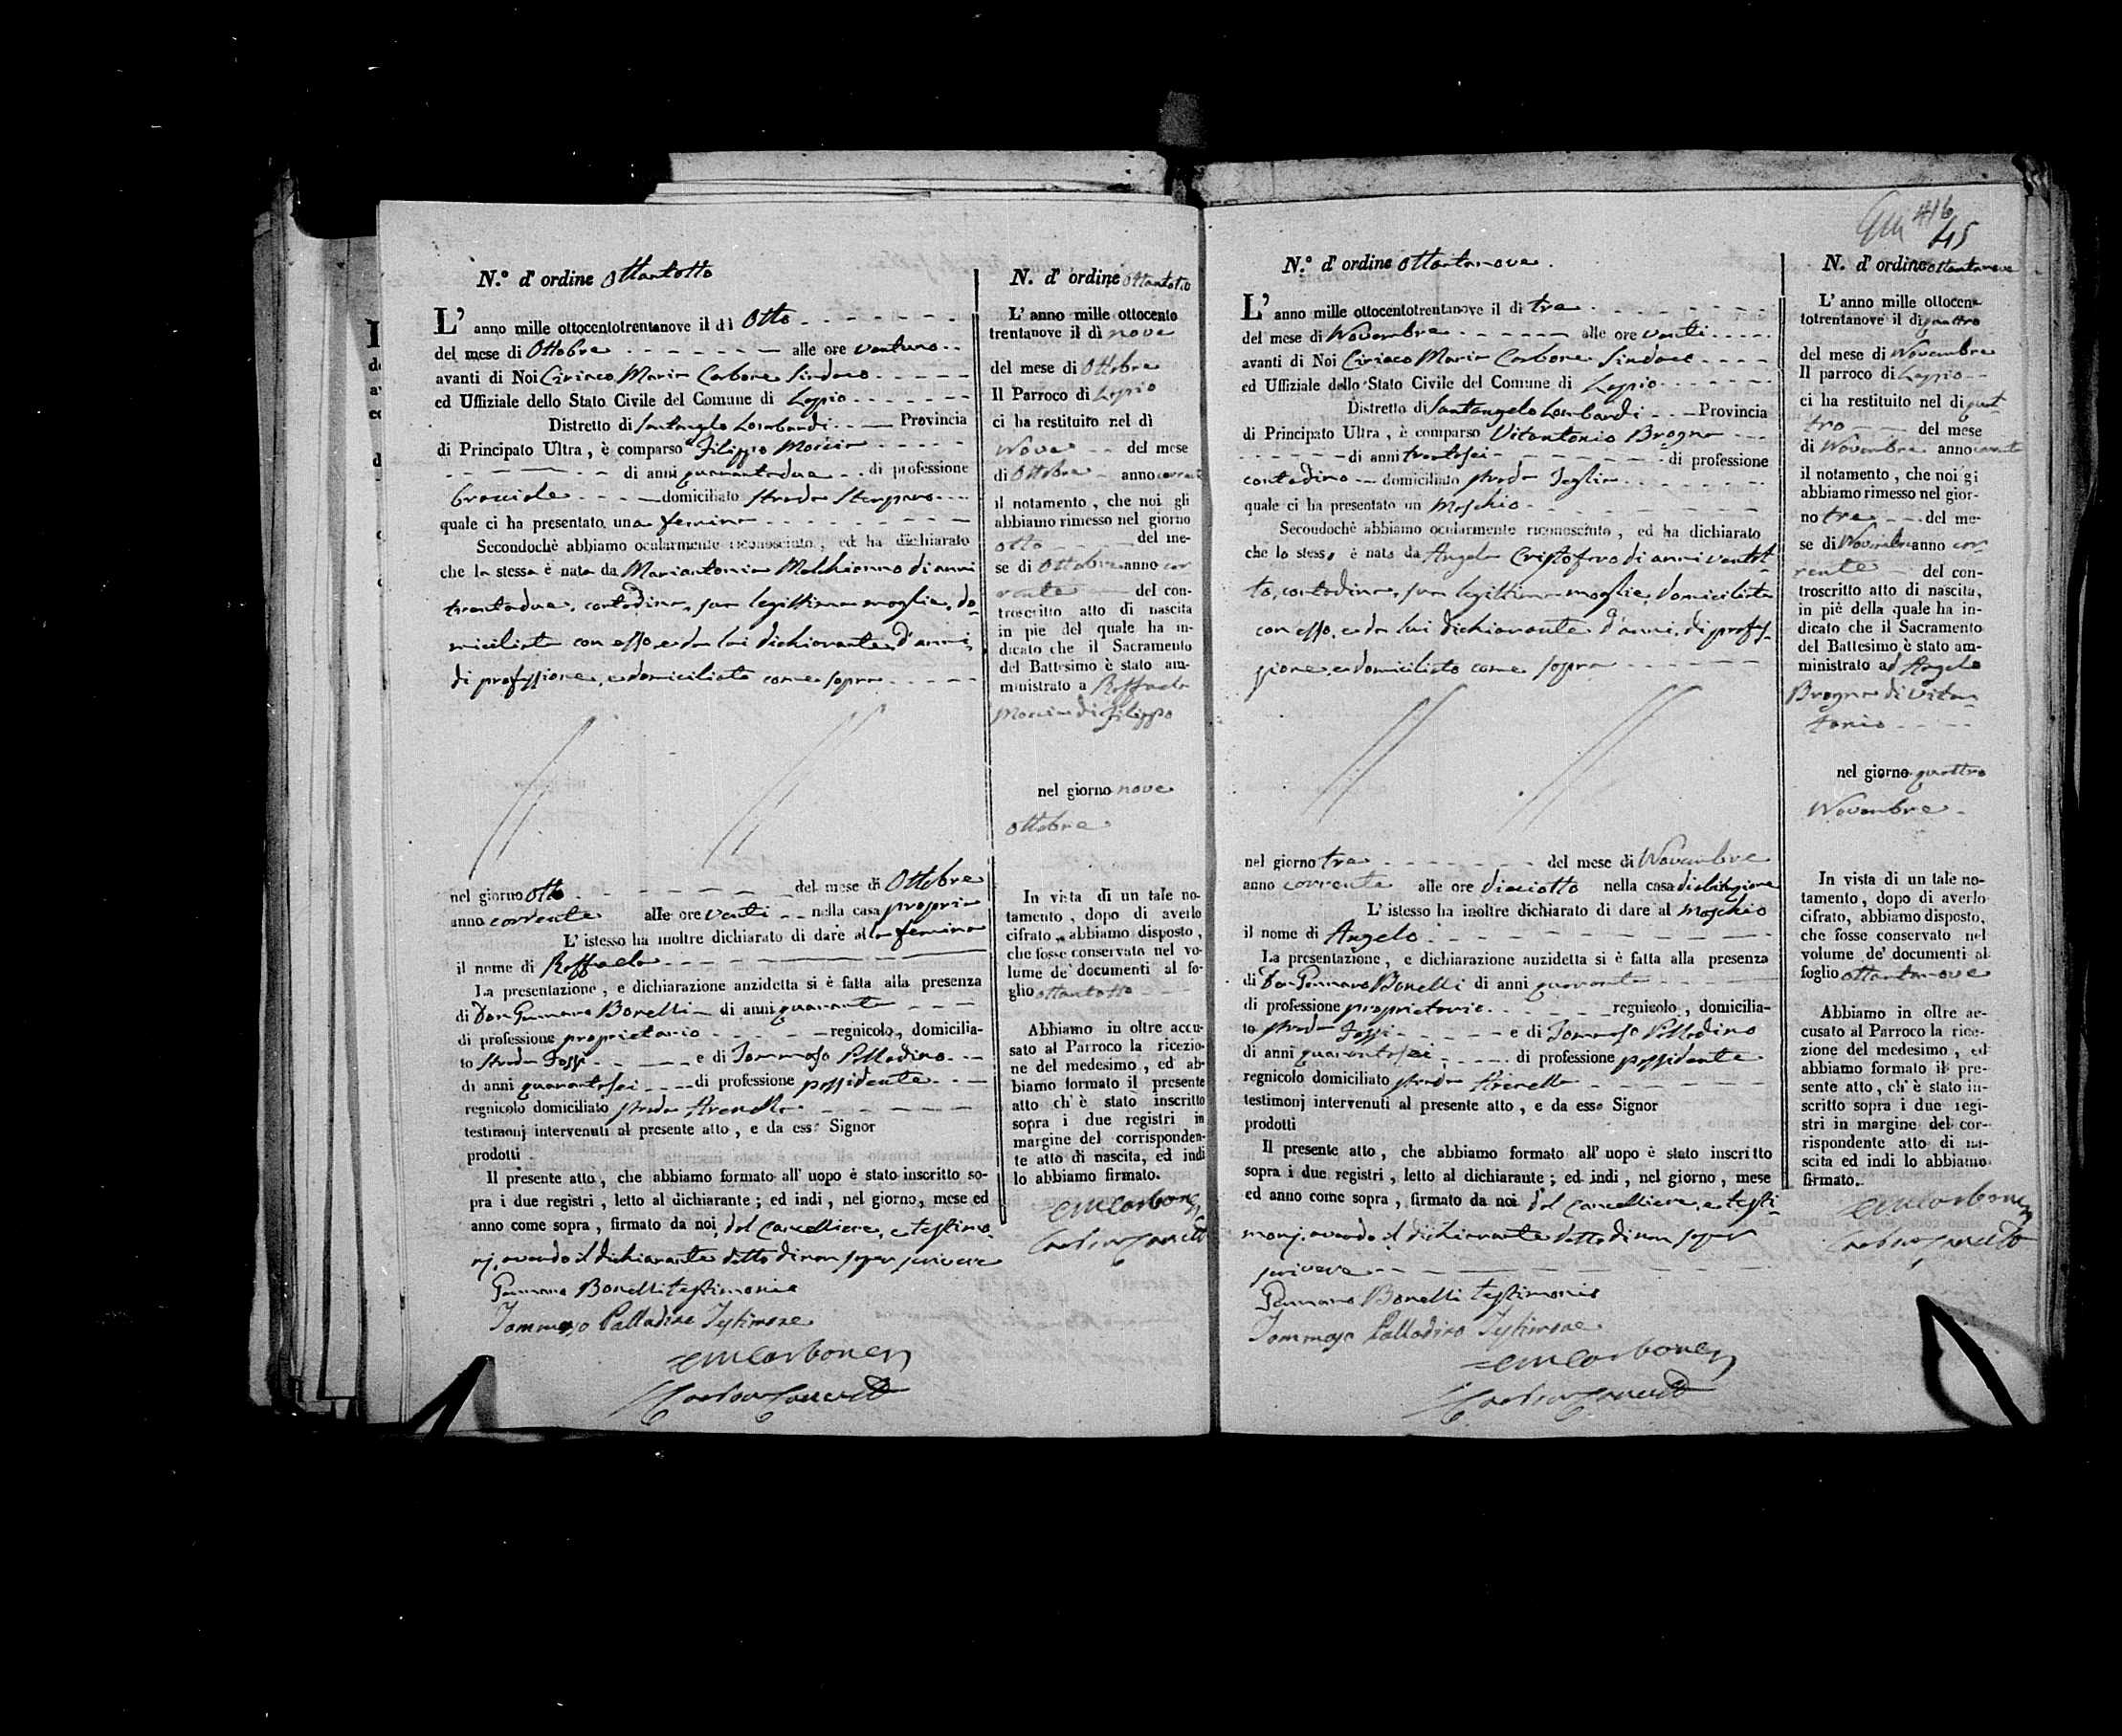 N.º d' ordine Ottantotto
L' anno mille ottocentotrentanove il dì Otto
del mese di Ottobre alle ore ventuno
avanti di Noi Ciriaco Maria Carbone Sindaco
ed Uffiziale dello Stato Civile del Comune di Lappio
Distretto di Santangelo Lombardi Provincia
di Principato Ultra, è comparso Filippo Moccia
di anni quarantadue di professione
bracciale domiciliato strada
quale ci ha presentato una femina
Secondochè abbiamo ocularmente riconosciuto, ed ha dichiarato
che la stessa è nata da Mariantonia Melchionno di anni
trentadue, contadina, sua legittima moglie, do-
miciliata con esso, e da lui dichiarante d'anni,
di professione, e domiciliato come sopra
nel giorno otto del mese di Ottobre
anno corrente alle ore venti nella casa propria
L' istesso ha inoltre dichiarato di dare alla femina
il nome di Raffaela
La presentazione, e dichiarazione anzidetta si è fatta alla presenza
di Don Gennaro Bonelli di anni quaranta
di professione proprietario regnicolo, domicilia-
to strada Fossi e di Tommaso Palladino
di anni quarantasei di professione possidente
regnicolo domiciliato strada Arenella
testimonj intervenuti al presente atto, e da esso Signor
prodotti.
Il presente atto, che abbiamo formato all' uopo è stato inscritto so-
pra i due registri, letto al dichiarante; ed indi, nel giorno, mese ed
anno come sopra, firmato da noi, dal Cancelliere, e testimo-
nj, avendo il dichiarante detto di non saper scrivere
Gennaro Bonelli testimonio
Tommaso Palladino Testimone
CMCarbone
N. d' ordine Ottantotto
L' anno mille ottocento
trentanove il dì nove
del mese di Ottobre
Il Parroco di Lappio
ci ha restituito nel dì
Nove del mese
di Ottobre anno corrente
il notamento, che noi gli
abbiamo rimesso nel giorno
otto del me-
se di Ottobre anno cor
rente del con-
troscritto atto di nascita
in piè del quale ha in-
dicato che il Sacramento
del Battesimo è stato am-
ministrato a Raffaela
Moccia di Filippo
nel giorno nove
Ottobre
In vista di un tale no-
tamento, dopo di averlo
cifrato, abbiamo disposto,
che fosse conservato nel vo-
lume de' documenti al fo-
glio ottantotto
Abbiamo in oltre accu-
sato al Parroco la ricezio-
ne del medesimo, ed ab-
biamo formato il presente
atto ch' è stato inscritto
sopra i due registri in
margine del corrisponden-
te atto di nascita, ed indi
lo abbiamo firmato.
CMCarbone
416
45
N.º d' ordine Ottantanove.
L' anno mille ottocentotrentanove il dì tre
del mese di Novembre alle ore venti
avanti di Noi Ciriaco Maria Carbone Sindaco
ed Uffiziale dello Stato Civile del Comune di Lappio
Distretto di Santangelo Lombardi Provincia
di Principato Ultra, è comparso Vitantonio Brogna
di anni trentasei di professione
contadino domiciliato strada Teglia
quale ci ha presentato un Maschio
Secondochè abbiamo ocularmente riconosciuto, ed ha dichiarato
che lo stesso è nato da Angela Cristofaro di anni ventot-
to, contadina, sua legittima moglie, domiciliata
con esso, e da lui dichiarante d'anni, di profes-
sione, e domiciliato come sopra
nel giorno tre del mese di Novembre
anno corrente alle ore diciotto nella casa di abitazione
L' istesso ha inoltre dichiarato di dare al Maschio
il nome di Angelo
La presentazione, e dichiarazione anzidetta si è fatta alla presenza
di Don Gennaro Bonelli di anni quaranta
di professione proprietario regnicolo, domicilia-
to strada Fossi e di Tommaso Palladino
di anni quarantasei di professione possidente
regnicolo domiciliato strada Arenella
testimonj intervenuti al presente atto, e da esso Signor
prodotti
Il presente atto, che abbiamo formato all' uopo è stato inscritto
sopra i due registri, letto al dichiarante; ed indi, nel giorno, mese
ed anno come sopra, firmato da noi dal Cancelliere, e testi-
monj, avendo il dichiarante detto di non saper
scrivere
Gennaro Bonelli testimonio
Tommaso Palladino Testimone
CMCarbone
N. d' ordine ottantanove
L' anno mille ottocen-
totrentanove il dì quattro
del mese di Novembre
Il parroco di Lappio
ci ha restituito nel dì quat-
tro del mese
di Novembre anno corrente
il notamento, che noi gi
abbiamo rimesso nel gior-
no tre del me-
se di Novembre anno cor-
rente del con-
troscritto atto di nascita,
in piè della quale ha in-
dicato che il Sacramento
del Battesimo è stato am-
ministrato ad Angelo
Brogna di Vitan-
tonio
nel giorno quattro
Novembre
In vista di un tale no-
tamento, dopo di averlo
cifrato, abbiamo disposto,
che fosse conservato nel
volume de' documenti al
foglio ottantanove
Abbiamo in oltre ac-
cusato al Parroco la rice-
zione del medesimo, ed
abbiamo formato il pre-
sente atto, ch' è stato in-
scritto sopra i due regi-
stri in margine del cor-
rispondente atto di na-
scita ed indi lo abbiamo
firmato.
CMCarbone